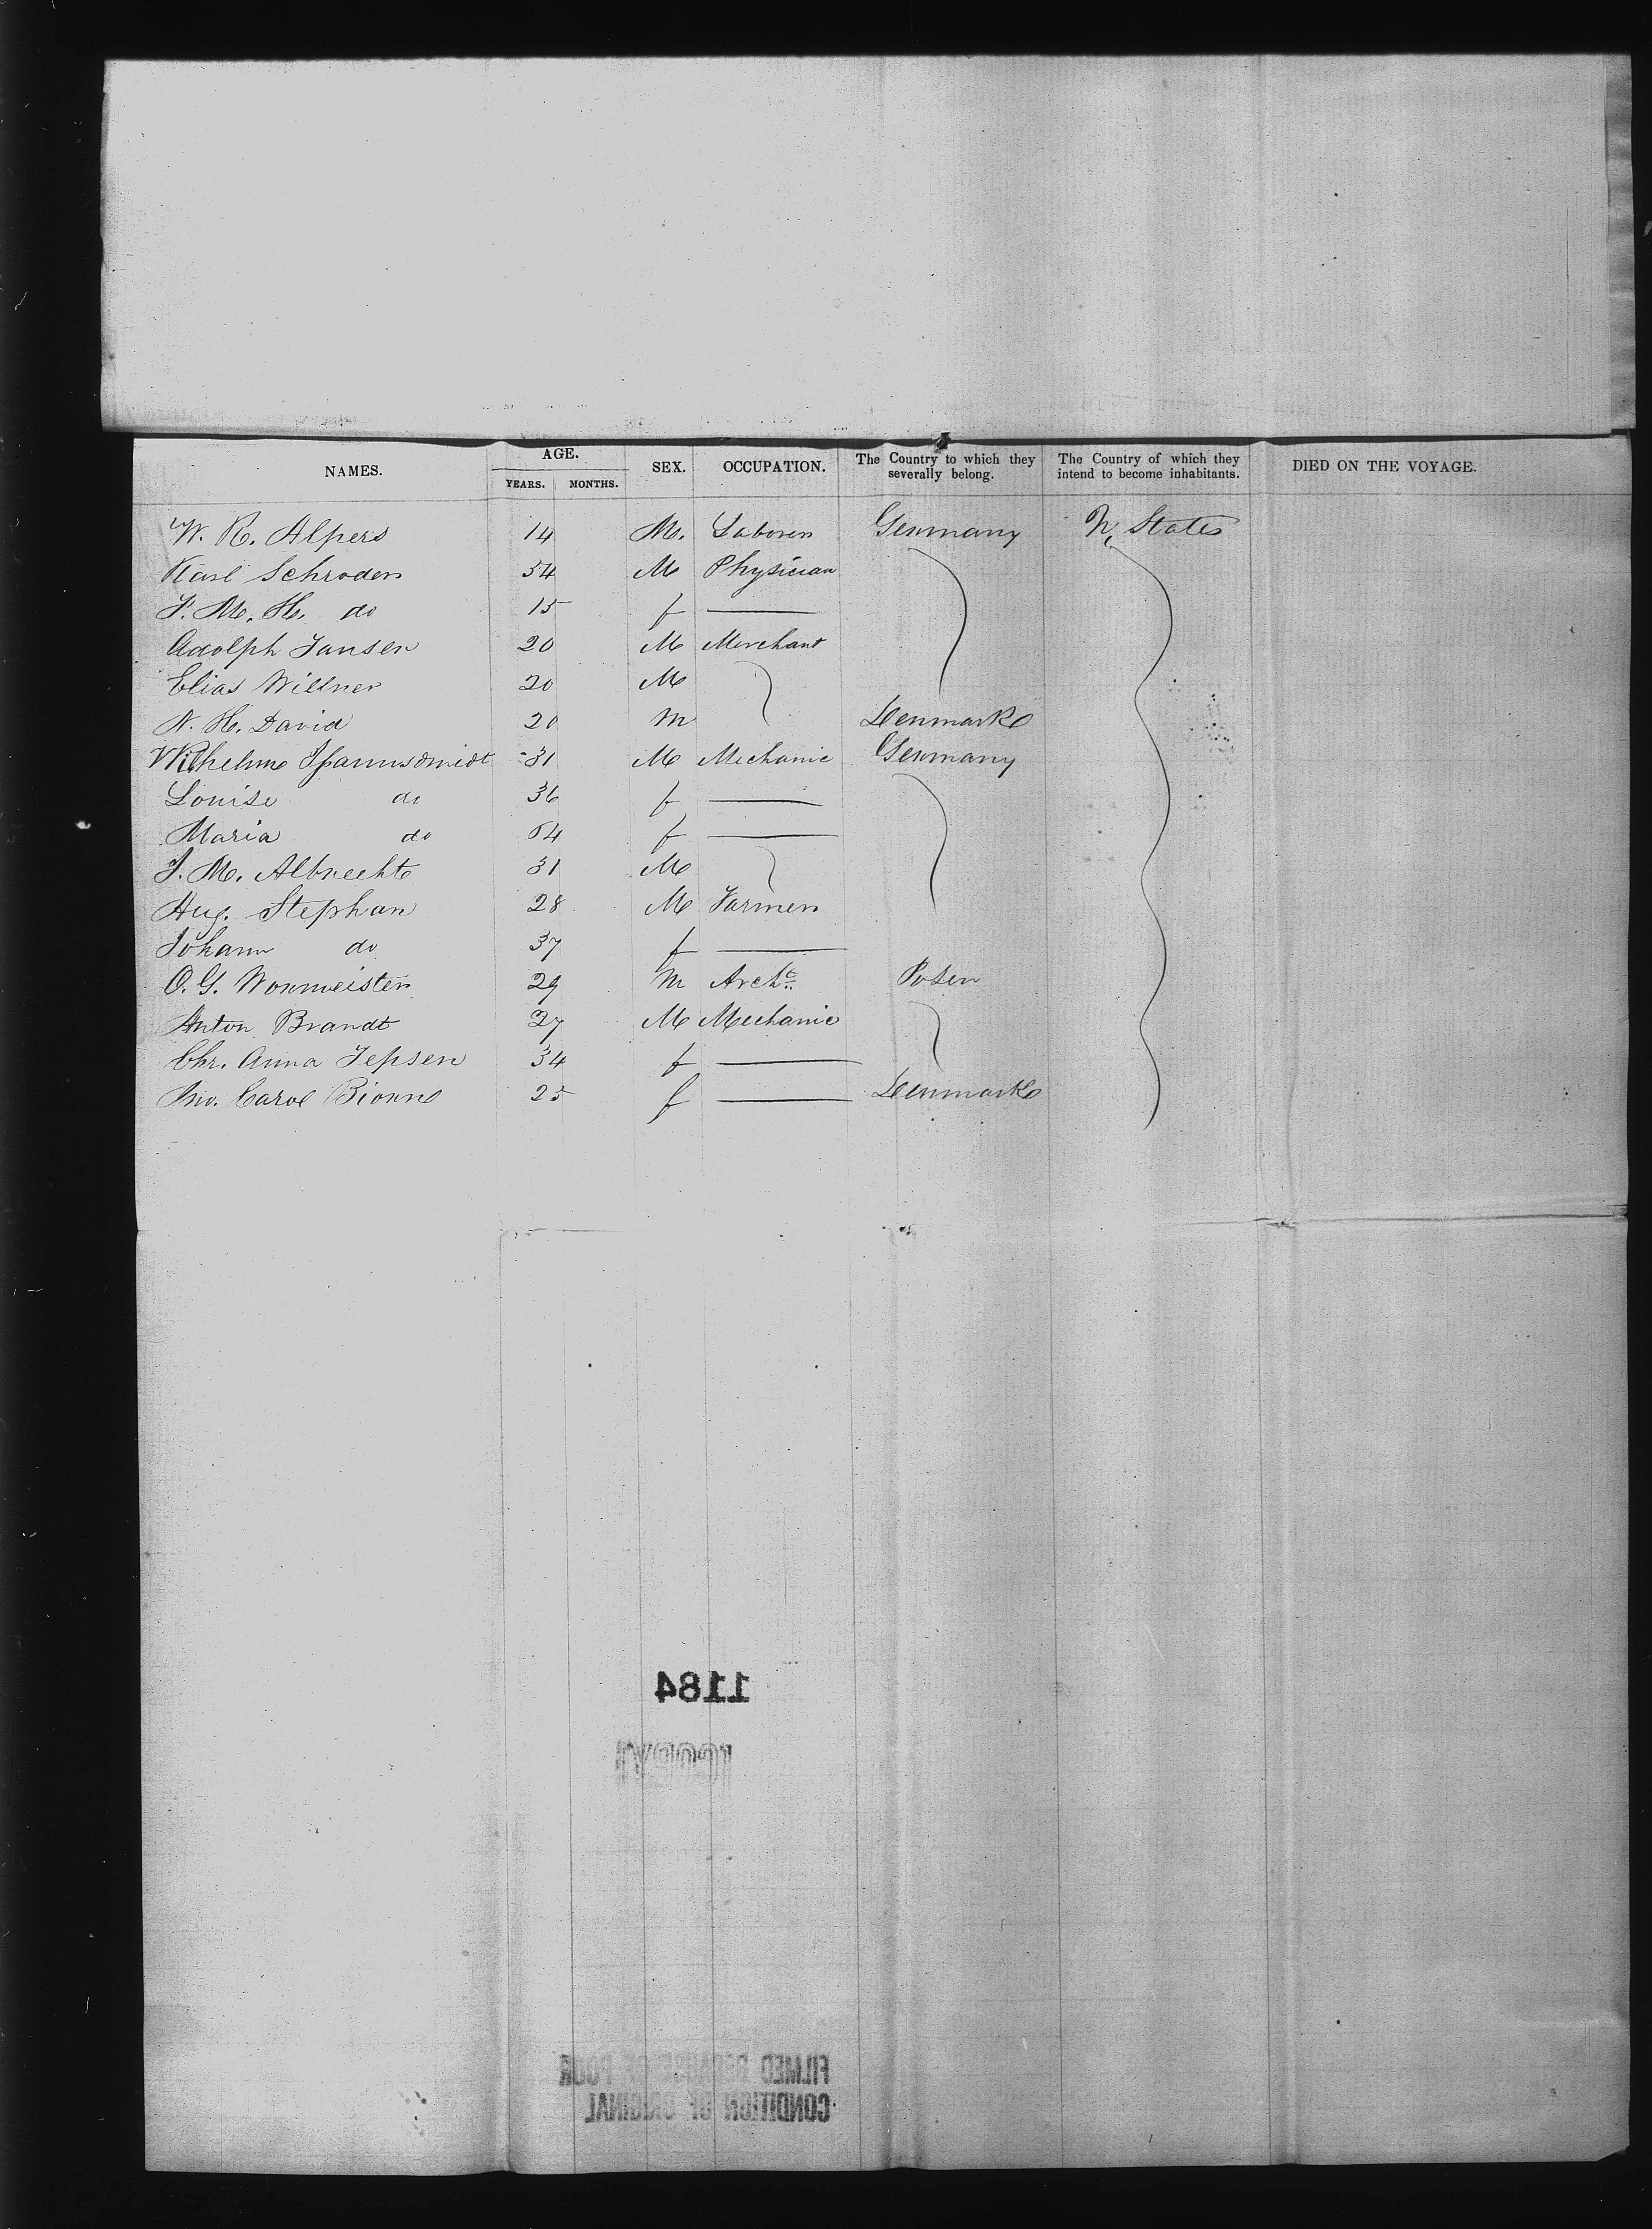 NAMES. AGE. YEARS. MONTHS. SEX. OCCUPATION. The Country to which they severally belong. The Country of which they intend to become inhabitants. DIED ON THE VOYAGE.
W. R. Alpers 14 M. Laborer Germany U. States
Karl Schroder 54 M Physician
F. M. H. do 15 f
Adolph Jansen 20 M Merchant
Elias Willner 20 M
N. H. David 20 M Denmark
Wilhelm 31 M Mechanic Germany
Louise do 36 f
Maria do 64 f
J. M. Albrecht 31 M
Aug. Stephan 28 M Farmer
Johann do 37 f
O. G. Wormeister 29 M Archt. Posen
Anton Brandt 27 M Mechanic
Chr. Anna Jepsen 34 f
Carol 25 f Denmark
1184
FILMED BECAUSE OF POOR
CONDITION OF ORIGINAL